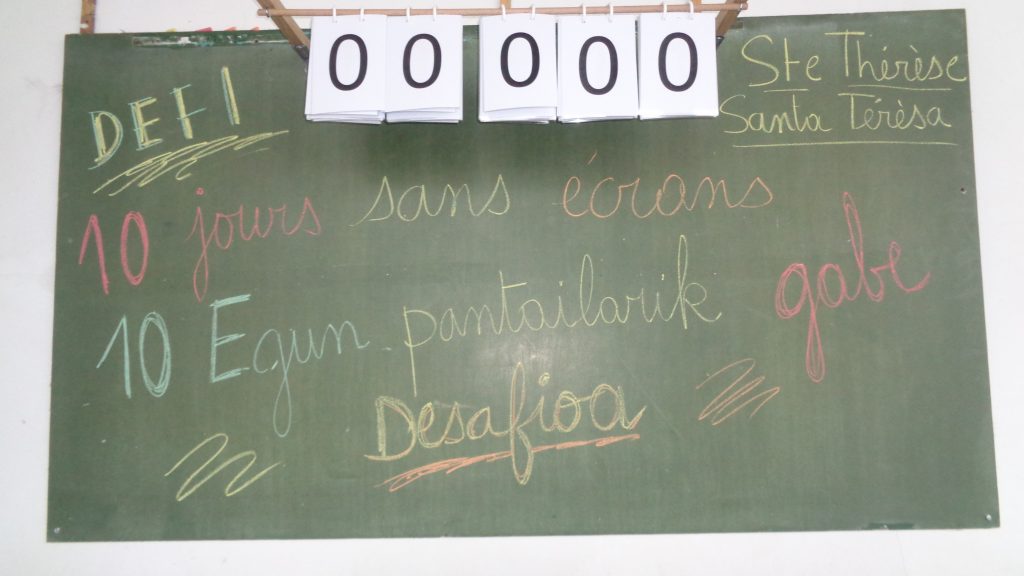 00 000
Ste Thérèse
Santa Térèsa
DEFI
10 jours sans écrans
10 Egun pantailarik gabe
Desafioa